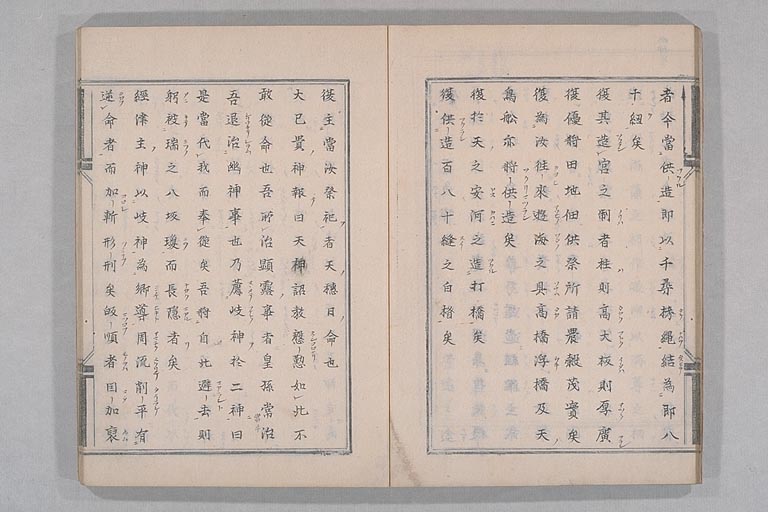 者今當供造即以千尋栲繩結為即八
十紐矣
復其造宮之制者柱則高大板則厚廣
復優將田地佃供祭所請農穀茂實矣
復為汝往來遊海之具高橋浮橋及天
鳥舩亦將供造矣
復於天之安河之造打橋矣
復供造百八十縫之白楯矣
復主當汝祭祀者天穗日命也
大已貴神報曰天神詔教慇懃如此不
敢從命也吾所治顯露事者皇孫當治
吾退治幽神事也乃薦岐神於二神曰
是當代我而奉從矣吾將自此避去則
躬被瑞之八坂瓊而長隱者矣
經津主神以岐神為鄉導周流削平有
逆命者而加斬形刑矣皈順者因加襃